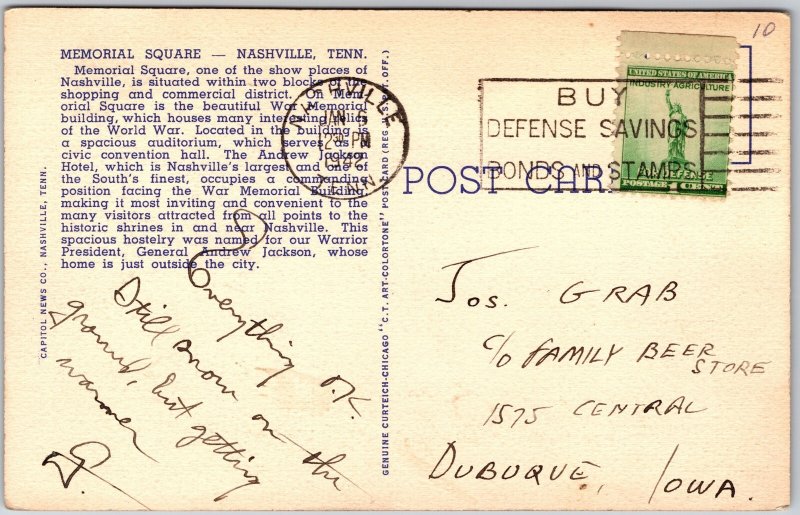 10
MEMORIAL SQUARE — NASHVILLE, TENN.
Memorial Square, one of the show places of
Nashville, is situated within two blocks of the
shopping and commercial district. On Mem-
orial Square is the beautiful War Memorial
building, which houses many interesting relics
of the World War. Located in the building is
a spacious auditorium, which serves as a
civic convention hall. The Andrew Jackson
Hotel, which is Nashville's largest and one of
the South's finest, occupies a commanding
position facing the War Memorial Building,
making it most inviting and convenient to the
many visitors attracted from all points to the
historic shrines in and near Nashville. This
spacious hostelry was named for our Warrior
President, General Andrew Jackson, whose
home is just outside the city.
CAPITOL NEWS CO., NASHVILLE, TENN.
Everything O.K.
Still snow on the
ground, but getting
warmer
GENUINE CURTEICH-CHICAGO "C.T. ART-COLORTONE" POST CARD (REG. U.S. PAT. OFF.)
NASHVILLE
JAN 5
230 PM
1942
TENN.
BUY
DEFENSE SAVINGS
BONDS AND STAMPS
UNITED STATES OF AMERICA
INDUSTRY AGRICULTURE
FOR DEFENSE
POSTAGE 1 CENT
POST CARD
Jos. GRAB
c/o FAMILY BEER
STORE
1575 CENTRAL
DUBUQUE, IOWA.